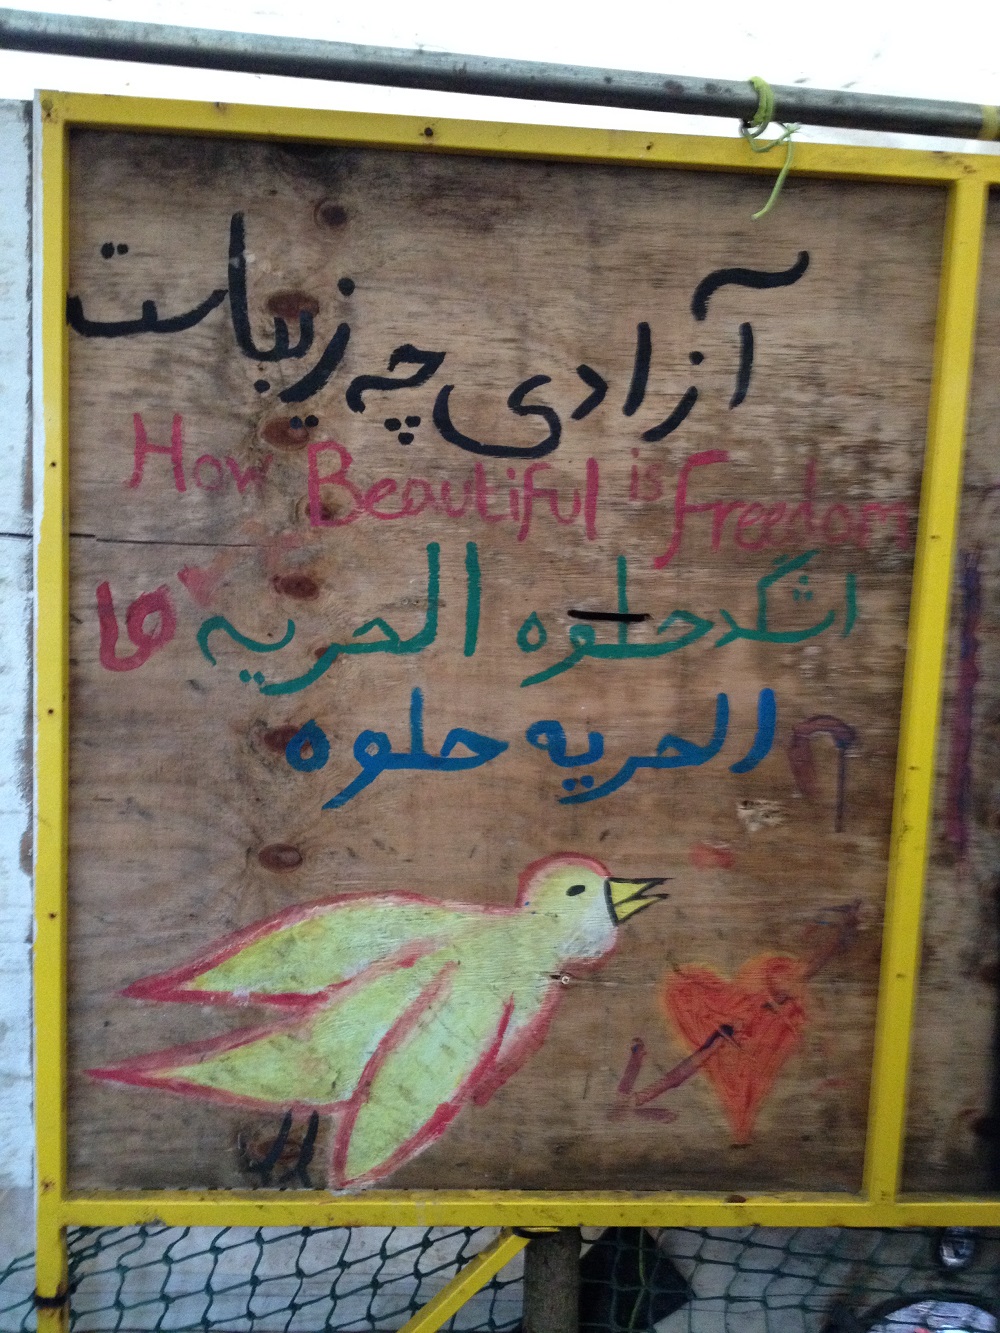 آزادی چه زیباست
How Beautiful is Freedom
اشگد حلوه الحريه
الحريه حلوه